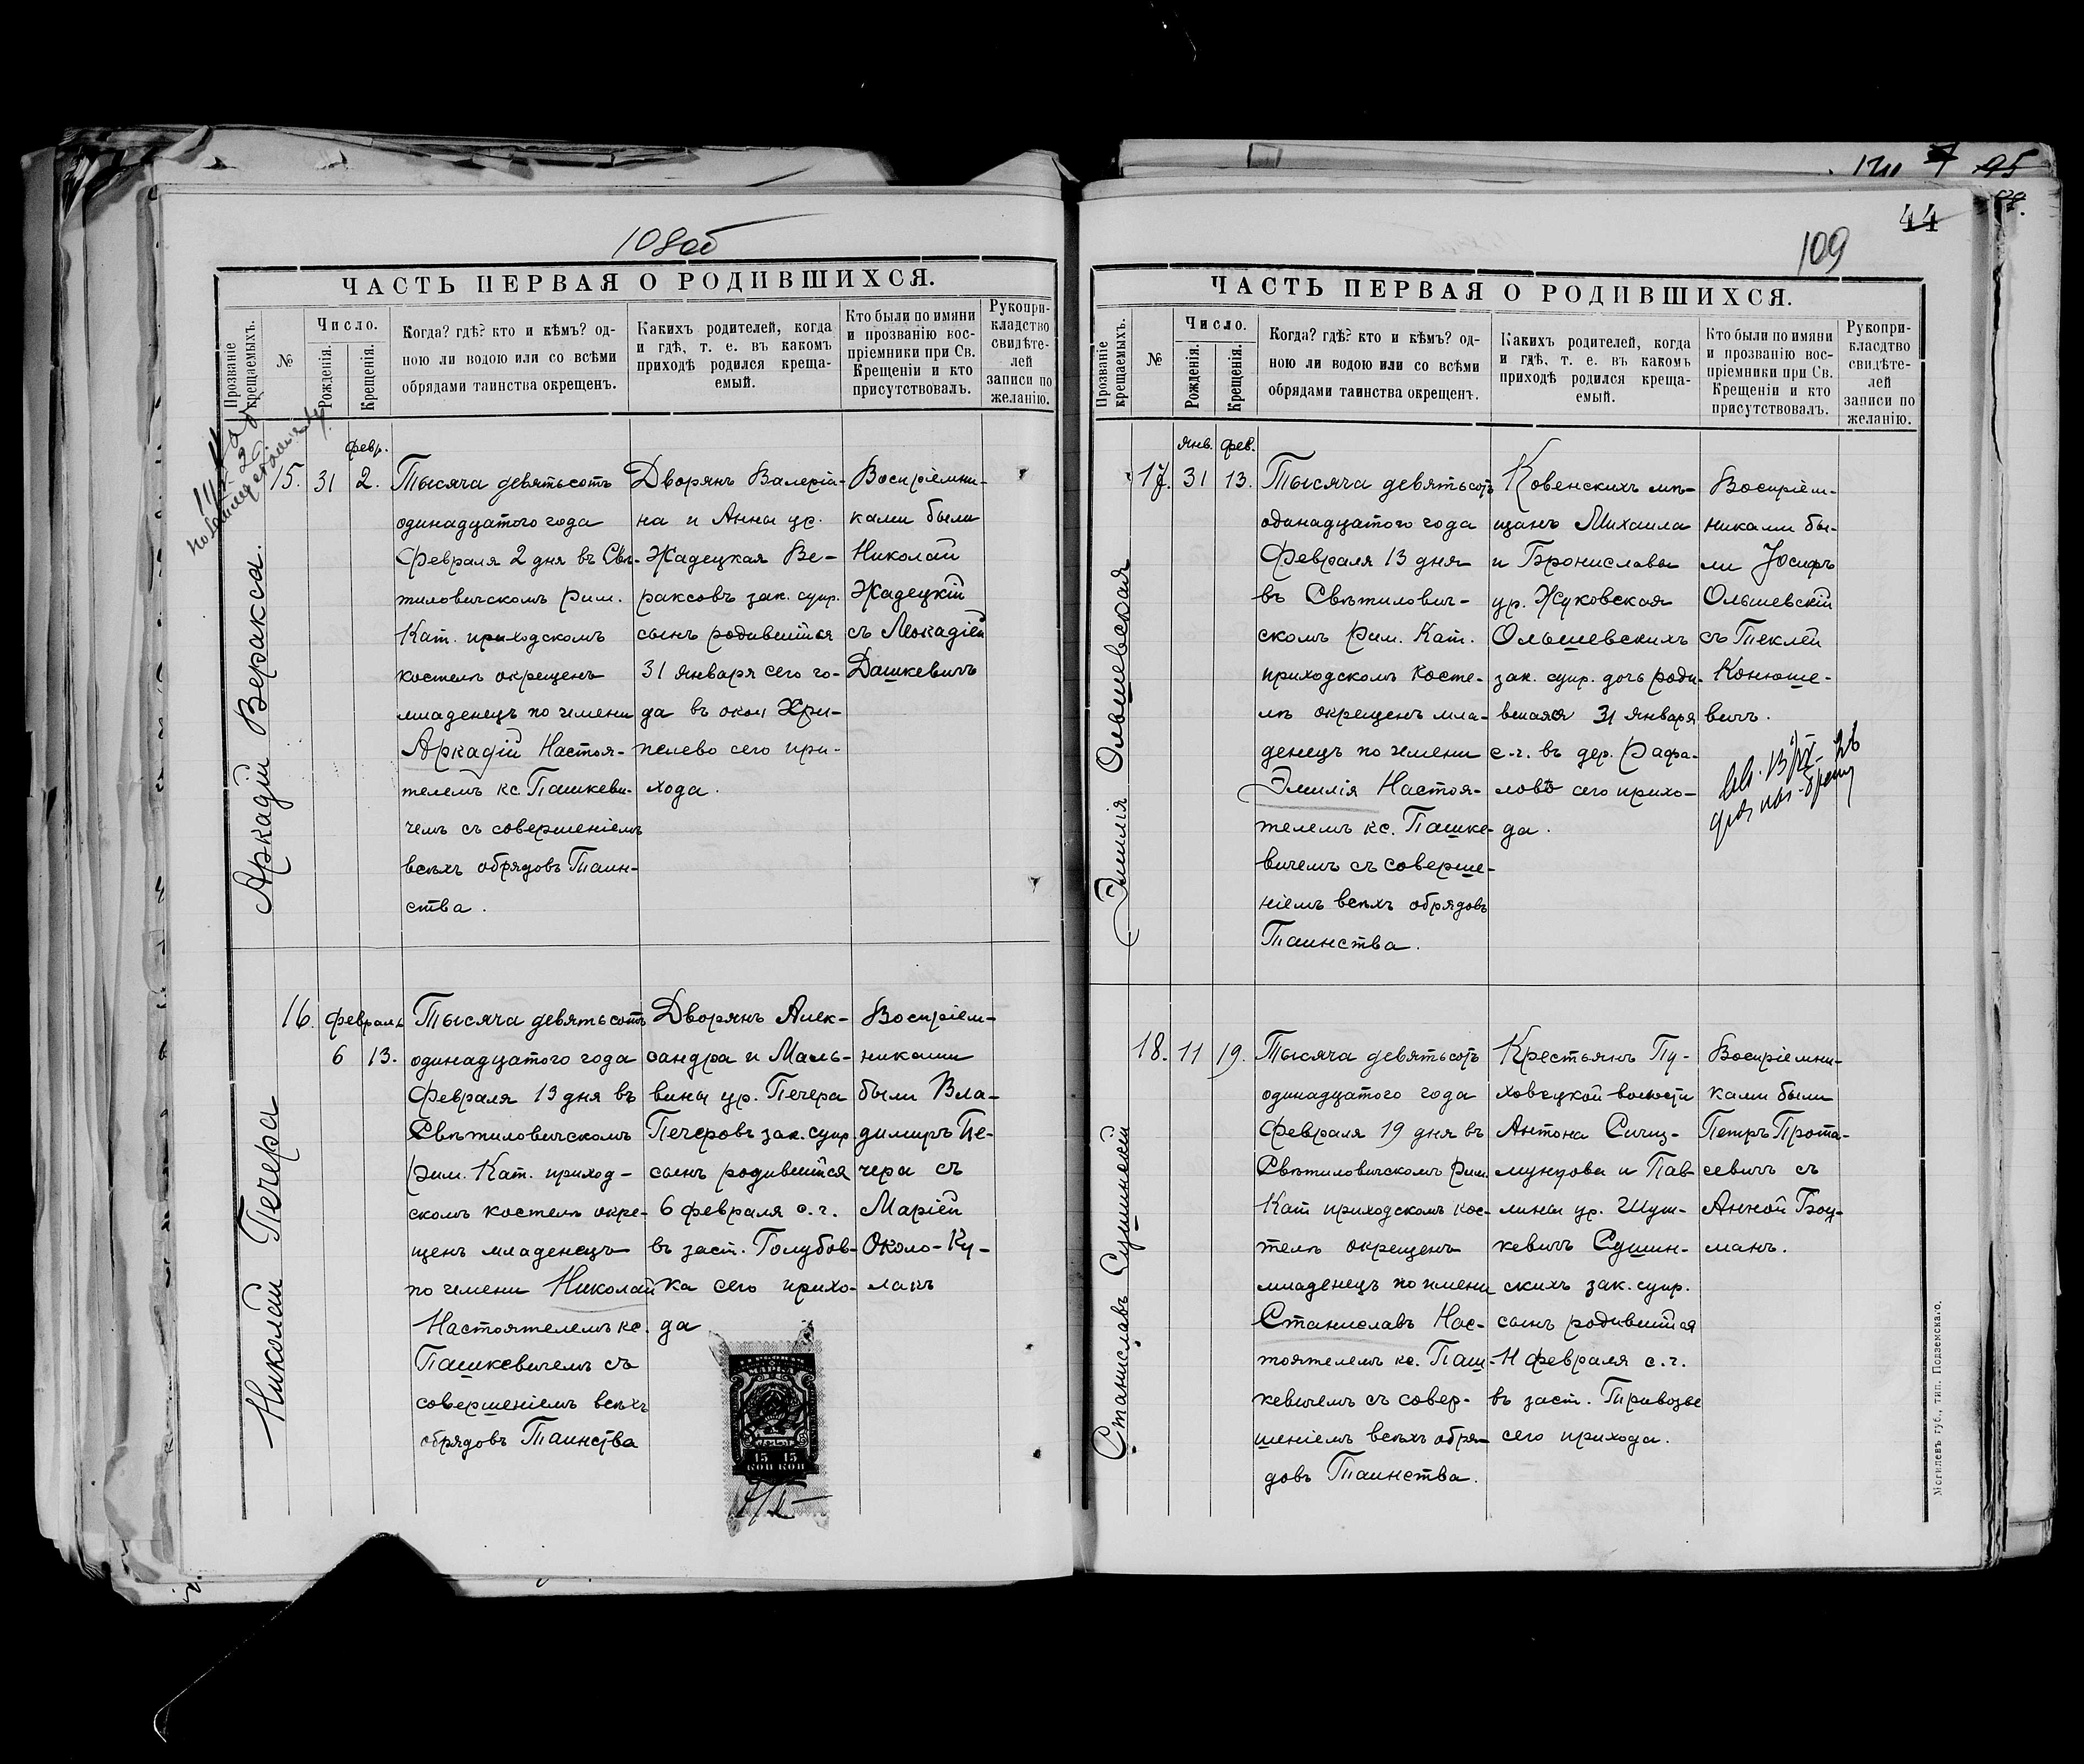 108об
ЧАСТЬ ПЕРВАЯ О РОДИВШИХСЯ.
Прозваніе крещаемыхъ.
№
Число.
Рожденія.
Крещенія.
Когда? гдѣ? кто и кѣмъ? од-
ною ли водою или со всѣми
обрядами таинства окрещенъ.
Какихъ родителей, когда
и гдѣ, т. е. въ какомъ
приходѣ родился креща-
емый.
Кто были по имяни
и прозванію вос-
пріемники при Св.
Крещеніи и кто
присутствовалъ.
Рукопри-
кладство
свидѣте-
лей
записи по
желанію.
Аркадій Веракса.
15.
31
февр.
2.
Тысяча девятьсотъ
одинадцатого года
Февраля 2 дня въ Свѣ-
тиловичскомъ Рим.
Кат. приходскомъ
костелѣ окрещенъ
младенецъ по имени
Аркадій Настоя-
телемъ кс. Пашкеви-
чемъ съ совершеніемъ
всѣхъ обрядовъ Таин-
ства.
Дворянъ Валеріа-
на и Анны ур.
Жадецкая Ве-
раксовъ зак. супр.
сынъ родившійся
31 Января сего го-
да въ окол Хри-
пелево сего при-
хода.
Воспріемни-
ками были
Николай
Жадецкій
съ Леокадіей
Дашкевичъ
Николай Печера
16.
Февраль
6
13.
Тысяча девятьсотъ
одинадцатого года
Февраля 13 дня въ
Свѣтиловичскомъ
Рим. Кат. приход-
скомъ костелѣ окре-
щенъ младенецъ
по имени Николай
Настоятелемъ кс.
Пашкевичемъ съ
совершеніемъ всѣхъ
обрядовъ Таинства
Дворянъ Алек-
сандра и Маль-
вины ур. Печера
Печеровъ зак. супр.
сынъ родившійся
6 февраля с. г.
въ заст. Голубов-
ка сего прихо-
да
Воспріем-
никами
были Вла-
димиръ Пе-
чера съ
Маріей
Около-Ку-
лакъ
МАРКА
15 15
КОП КОП
44
109
ЧАСТЬ ПЕРВАЯ О РОДИВШИХСЯ.
Прозваніе крещаемыхъ.
№
Число.
Рожденія.
Крещенія.
Когда? гдѣ? кто и кѣмъ? од-
ною ли водою или со всѣми
обрядами таинства окрещенъ.
Какихъ родителей, когда
и гдѣ, т. е. въ какомъ
приходѣ родился креща-
емый.
Кто были по имяни
и прозванію вос-
пріемники при Св.
Крещеніи и кто
присутствовалъ.
Рукопри-
класдтво
свидѣте-
лей
записи по
желанію.
Эмилія Ольшевская
17.
Янв.
31
Фев.
13.
Тысяча девятьсотъ
одинадцатого года
Февраля 13 дня
въ Свѣтилович-
скомъ Рим. Кат.
приходскомъ Косте-
лѣ окрещенъ мла-
денецъ по имени
Эмилія Настоя-
телемъ кс. Пашке-
вичемъ съ соверше-
ніемъ всѣхъ обрядовъ
Таинства.
Ковенскихъ мѣ-
щанъ Михаила
и Брониславы
ур. Жуковская
Ольшевскихъ
зак. супр. дочь роди-
вшаяся 31 Января
с.г. въ дер. Рафа-
ловѣ сего прихо-
да.
Воспріем-
никами бы-
ли Іосифъ
Ольшевскій
съ Теклей
Конюше-
вичъ.
Станиславъ Сушинскій
18.
11
19.
Тысяча девятьсотъ
одинадцатого года
Февраля 19 дня въ
Свѣтиловичскомъ Рим.
Кат приходскомъ кос-
телѣ окрещенъ
младенецъ по имени
Станиславъ Нас-
тоятелемъ кс. Паш-
кевичемъ съ совер-
шеніемъ всѣхъ обря-
довъ Таинства.
Крестьянъ Пу-
ховецкой волости
Антона Сиги-
мундова и Пав-
лины ур. Шуш-
кевичъ Сушин-
скихъ зак. супр.
сынъ родившійся
11 февраля с.г.
въ заст.
сего прихода.
Воспріемни-
ками были
Петръ Прота-
севичъ съ
Анной Боц-
манъ.
Могилевъ губ., тип. Подземскаго.